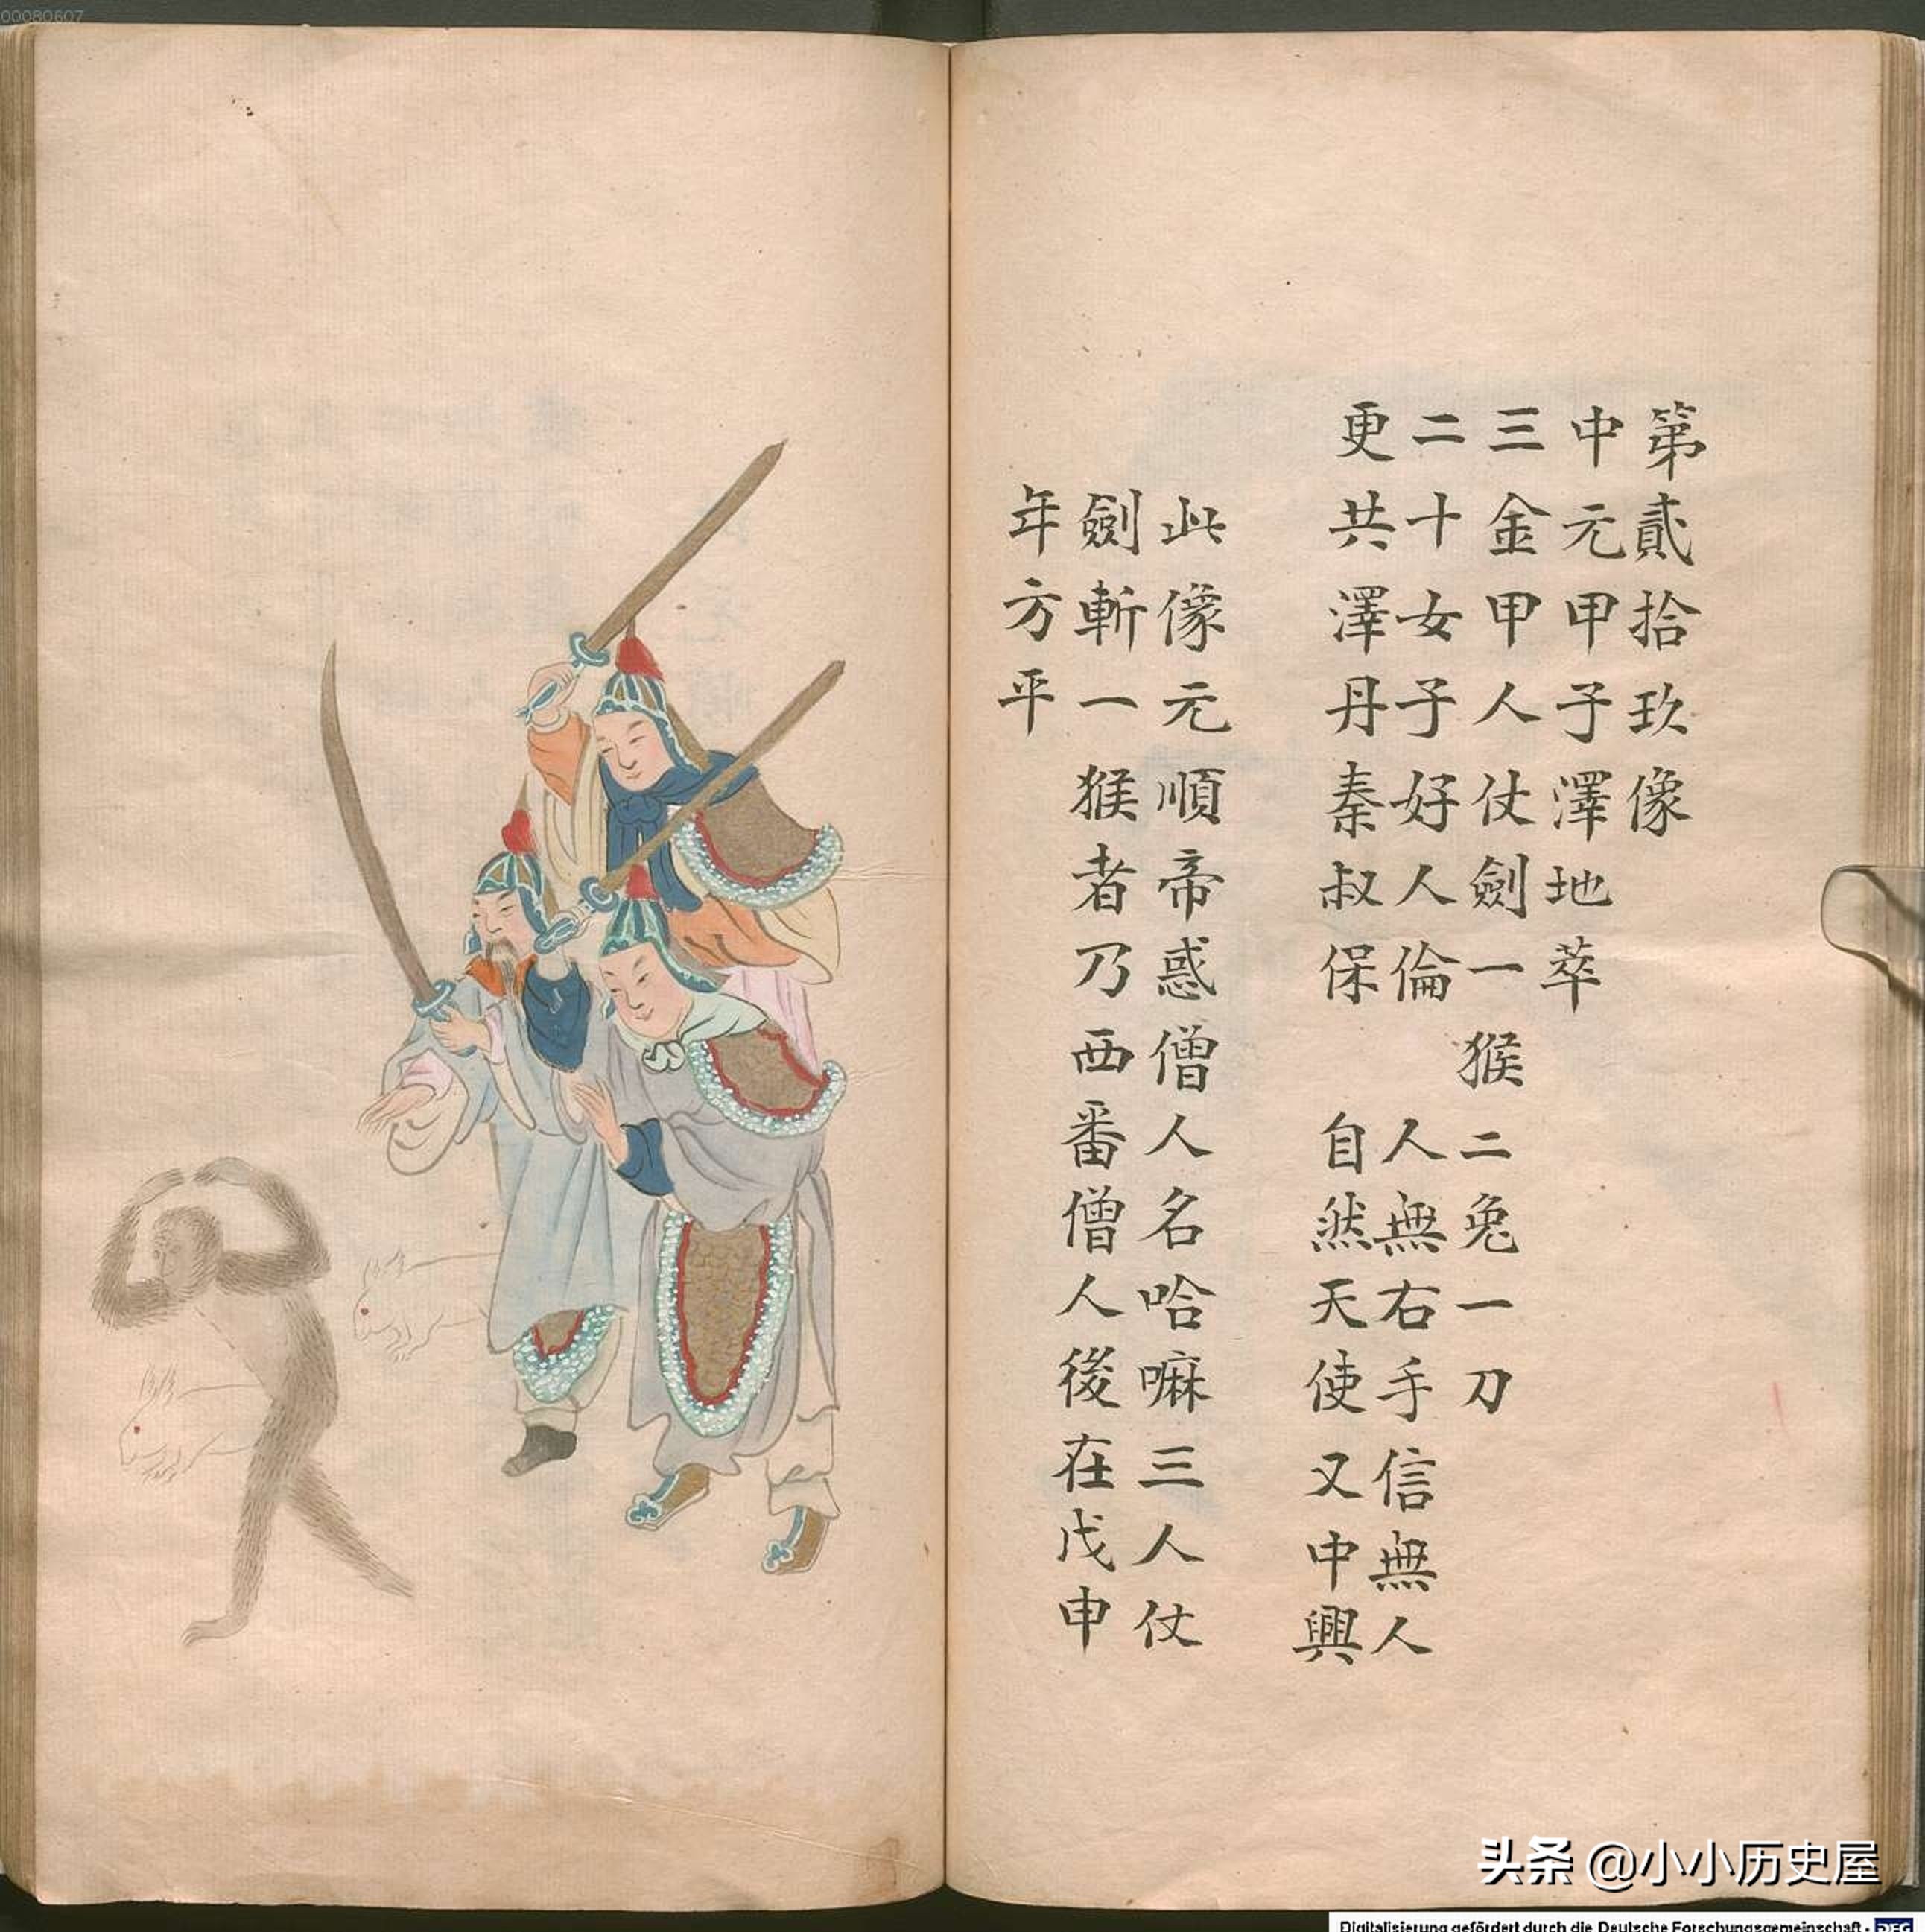 00080607
第貳拾玖像
中元甲子澤地萃
三金甲人仗劍一猴二兔一刀
二十女子好人倫　人無右手信無人
更共澤丹秦叔保　自然天使又中興
此像元順帝惑僧人名哈嘛三人仗
劍斬一猴者乃西番僧人後在戊申
年方平
头条 @小小历史屋
Digitalisierung gefördert durch die Deutsche Forschungsgemeinschaft - DFG